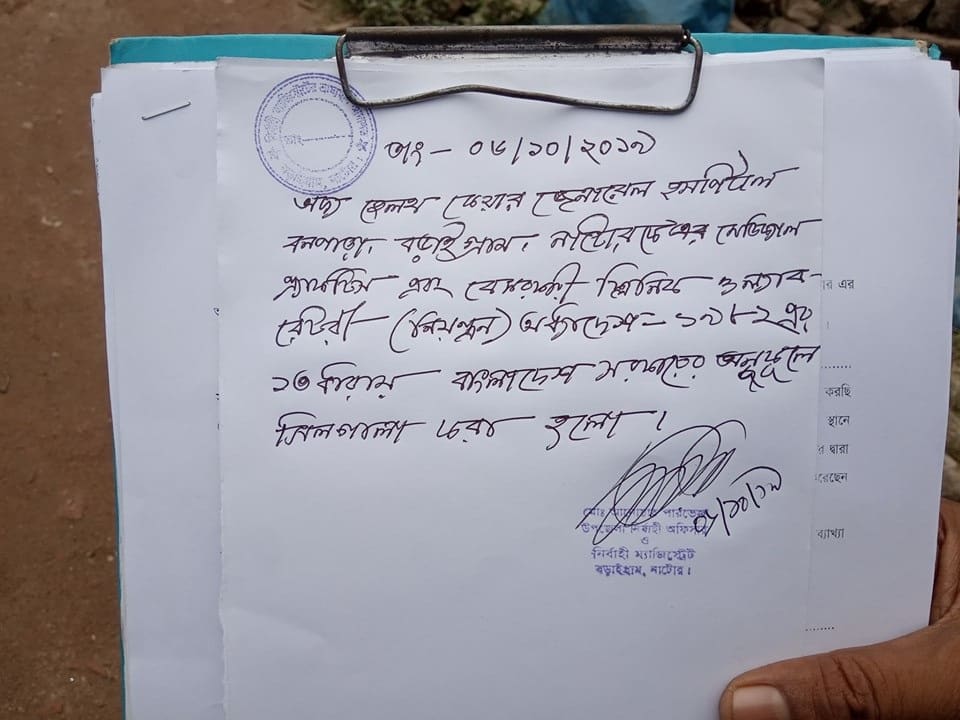 তাং- ০৮/১০/২০১৯
অদ্য হেলথ কেয়ার জেনারেল হসপিটাল
বনপাড়া, বড়াইগ্রাম, নাটোরকে মেডিকেল
প্র্যাকটিস এবং বেসরকারী ক্লিনিক ও ল্যাব-
রেটরী (নিয়ন্ত্রন) অধ্যাদেশ- ১৯৮২ এর
১৩ ধারায় বাংলাদেশ সরকারের অনুকূলে
সিলগালা করা হলো।
০৮/১০/১৯
মোঃ আনোয়ার পারভেজ
উপজেলা নির্বাহী অফিসার
ও
নির্বাহী ম্যাজিস্ট্রেট
বড়াইগ্রাম, নাটোর।
র এর
করছি
স্থানে
র দ্বারা
রেছেন
ব্যাখ্যা